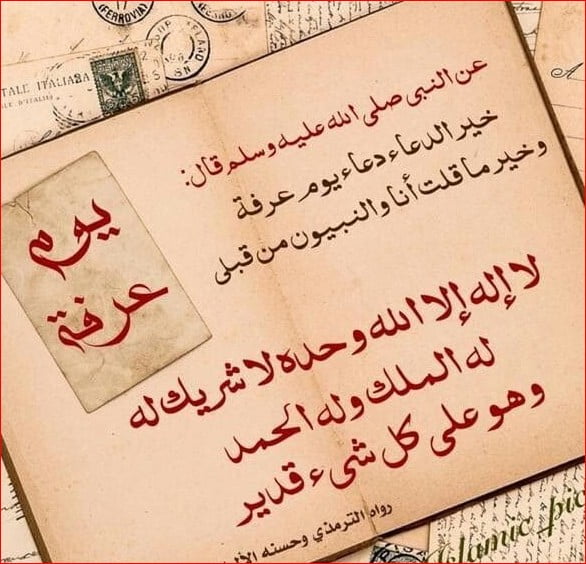 (FERROVIA)
TALE ITALIANA
عن النبى صلى الله عليه وسلم قال:
خير الدعاء دعاء يوم عرفة
وخير ما قلت أنا والنبيون من قبلى
يوم
عرفة
لا إله إلا الله وحده لا شريك له
له الملك وله الحمد
وهو على كل شىء قدير
رواه الترمذي وحسنه